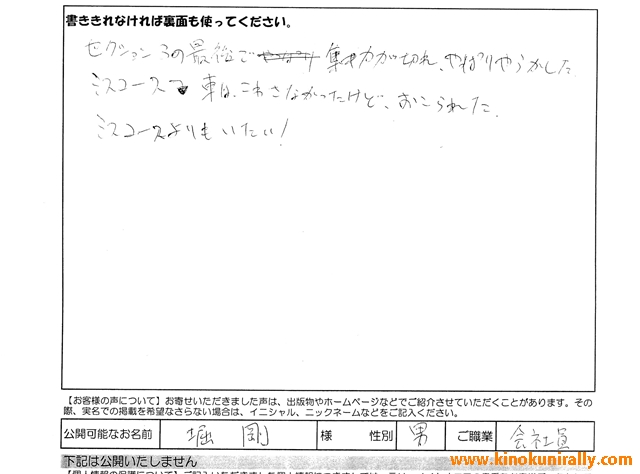 書ききれなければ裏面も使ってください。
セクション3の最後で 集中力が切れ、やっぱりやらかした
ミスコースで 車は、こわさなかったけど、おこられた。
ミスコースよりもいたい!
【お客様の声について】お寄せいただきました声は、出版物やホームページなどでご紹介させていただくことがあります。その
際、実名での掲載を希望なさらない場合は、イニシャル、ニックネームなどをご記入ください。
公開可能なお名前 堀 剛 様 性別 男 ご職業 会社員
下記は公開いたしません
www.kinokunirally.com